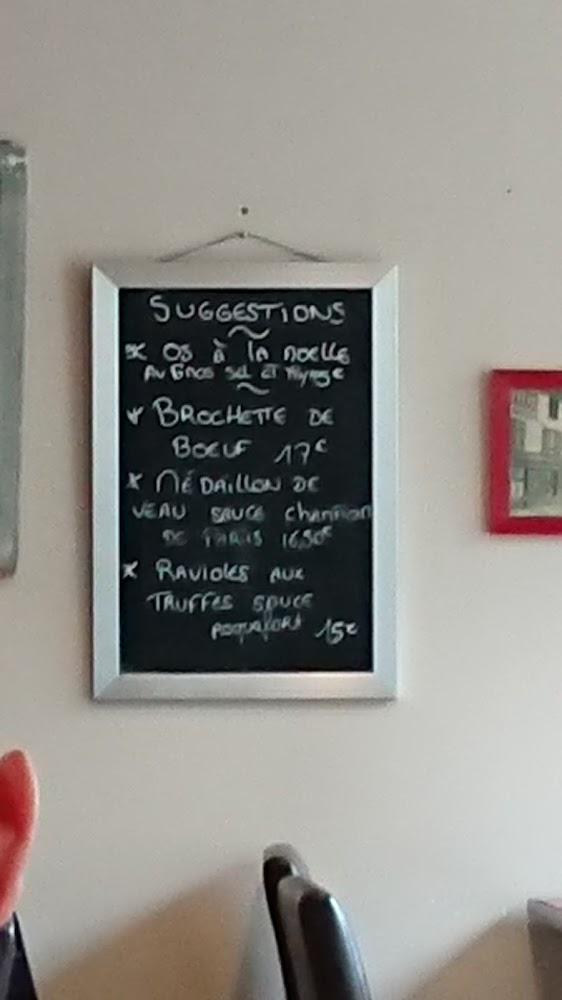 SUGGESTIONS
* OS à la MOELLE
AU GROS SEL ET THYM 9€
* BROCHETTE DE
BOEUF 17€
* MÉDAILLON DE
VEAU SAUCE CHAMPIGNON
DE PARIS 16,50€
* RAVIOLES AUX
TRUFFES SAUCE
ROQUEFORT 15€